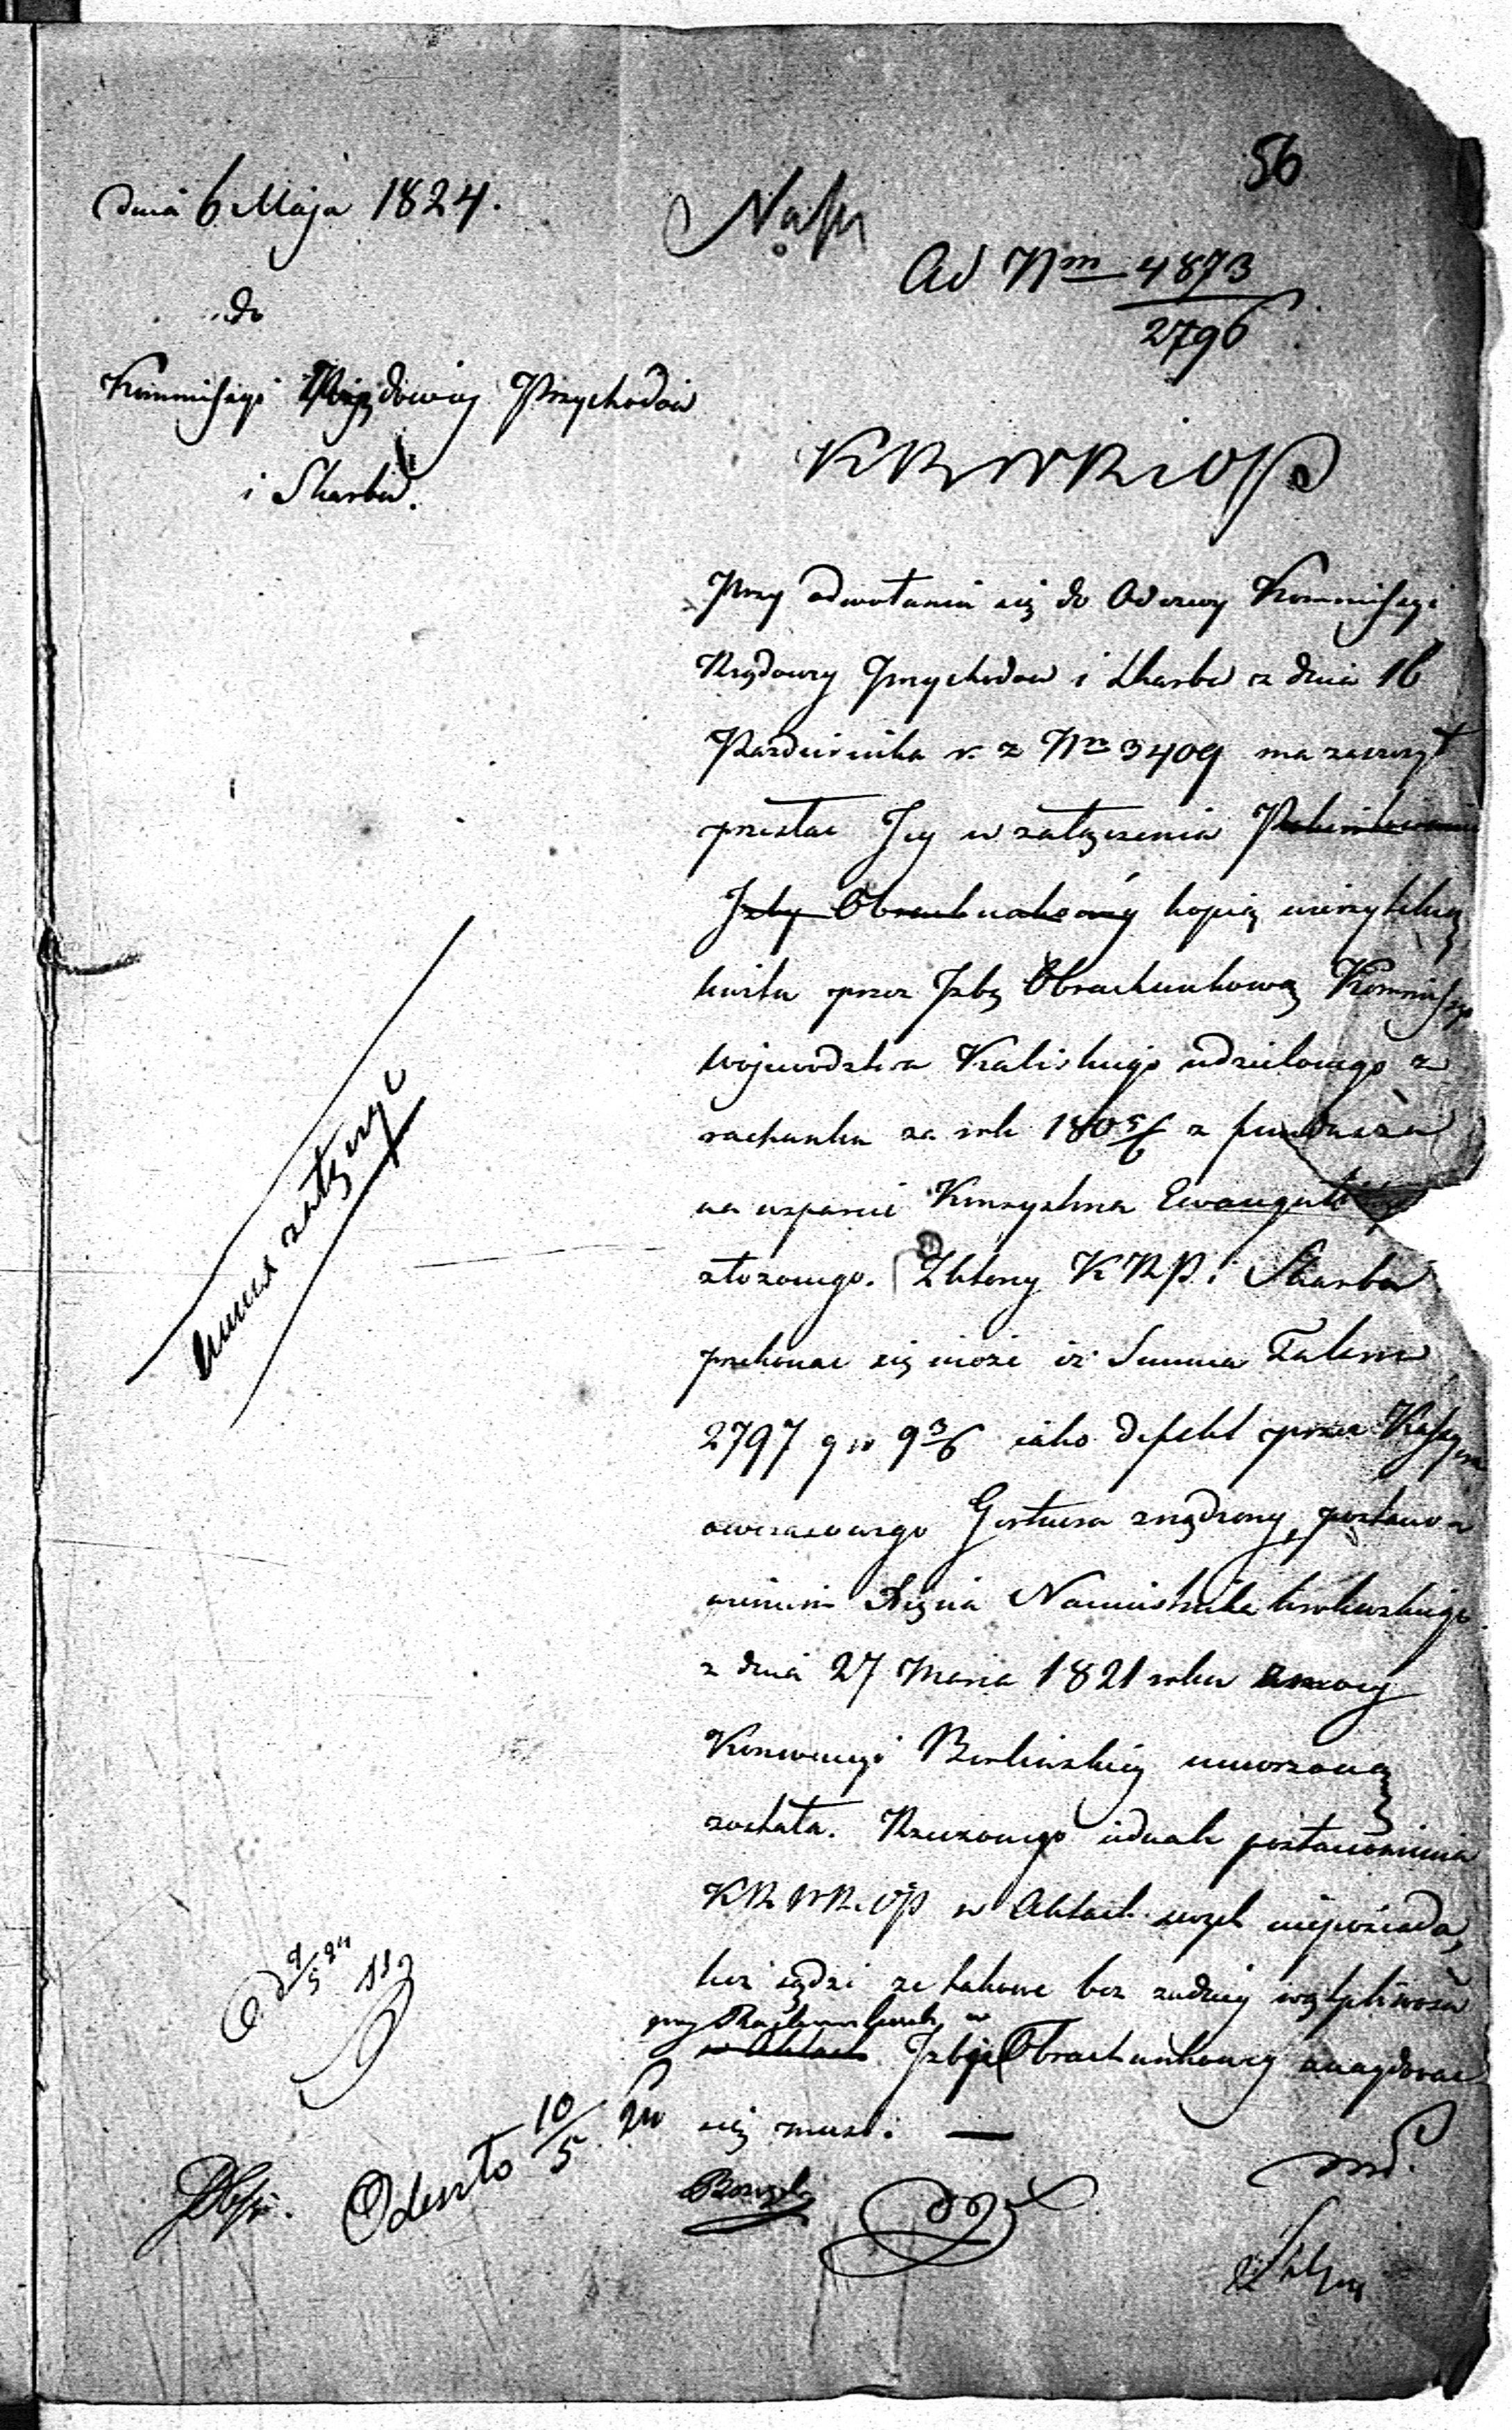 56
dnia 6 Maja 1824.
Ad Nm 4873
2796
do
Kommissyi Rządowey Przychodów
i Skarbu.
KRWRiOP
Przy odwołaniu się do Odezwy Kommissyi
Rządowey Przychodow i Skarbu z dnia 16
Pazdziernika r. z Nro 3409 ma zaszczyt
przesłac Jey w załączeniu
Izby Obrachunkowey kopią wierzytelną
kwitu przez Izbę Obrachunkową Kommissyi
Wojewodztwa Kaliskiego udzielonego z
rachunku za rok 1805/6 z funduszu
na wsparcie Konsystorza Ewangeli
złozonego. Z ktorey KRP i Skarbu
przekonac się może iż Summa Talarow
2797 9 3/6 iako defekt przez Kassyera
owczasowego zrządzony, postano-
wieniem Xięcia Namiestnika Krolewskiego
z dnia 27 Marca 1821 roku z mocy
Konwencyi Berlinskiey umorzoną
została. Rzeczonego iednak postanowienia
KRWR.OP w Aktach swych nieposiada,
lecz sądzi ze takowe bez zadney wątpliwosci
przy Rachunkach w
w Aktach Izby Obrachunkowey znaydowac
się musi. —
kwit załączyć
9/5 24
Odeszło 10/5 24